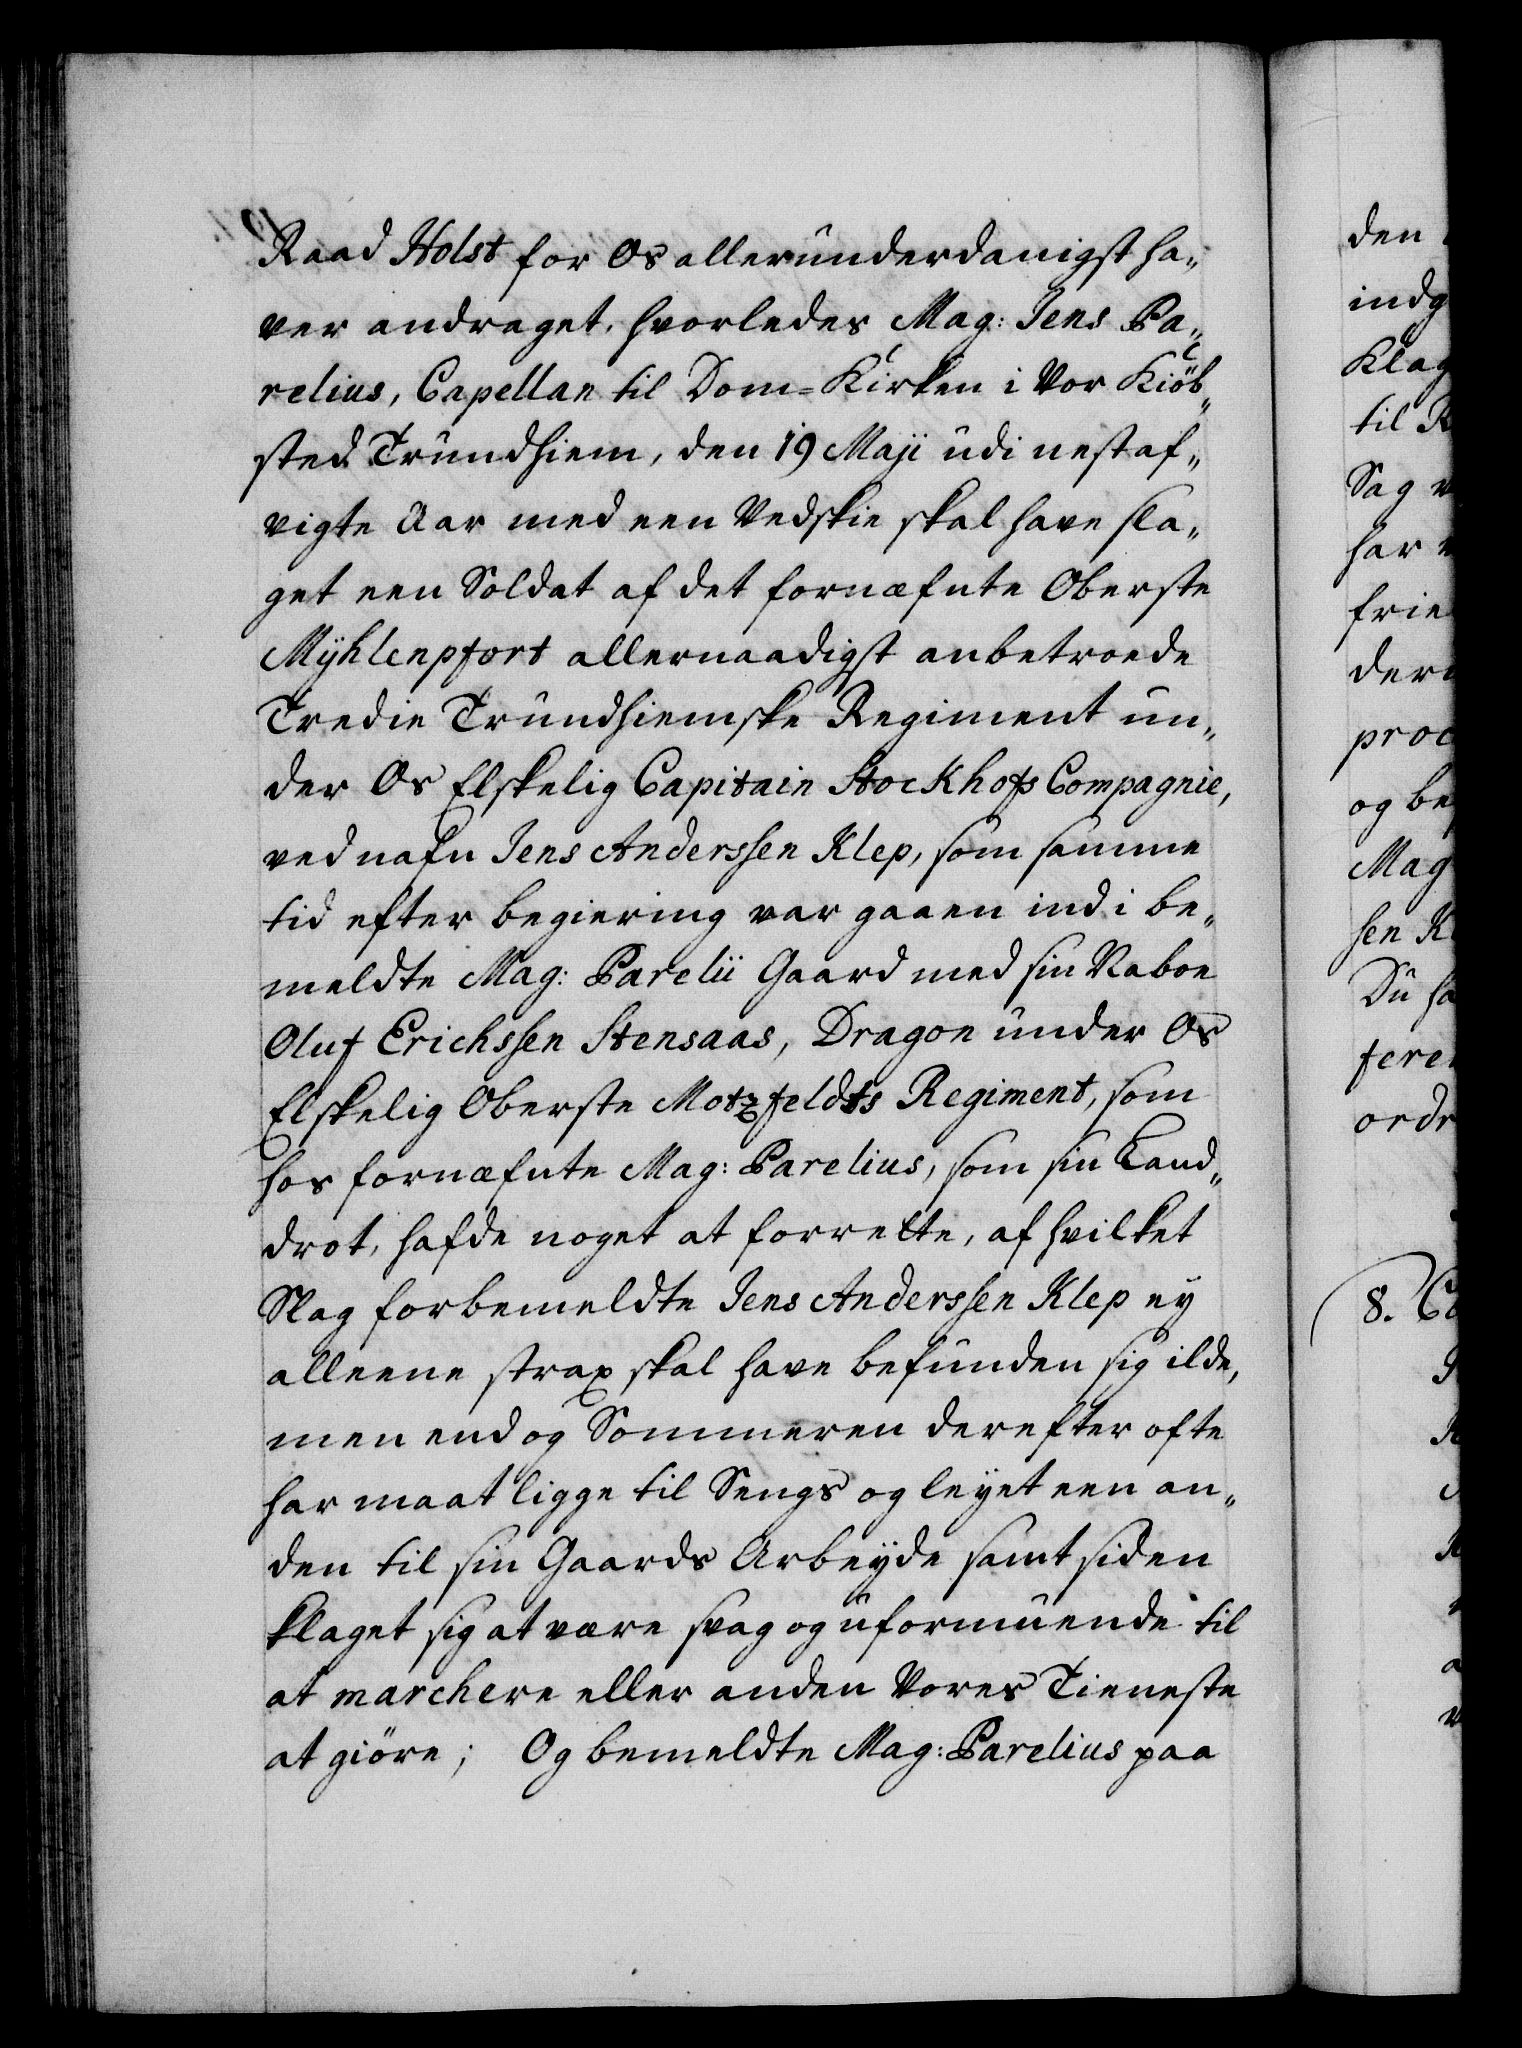 Raad Holst for Os allerunderdanigst ha„
ver andraget, hvorledes Mag: Jens Pa„
relius, Capellan til Dom-Kirken i Vor Kiöb„
sted Trundhiem, den 19 Maji udi nestaf„
vigte Aar med een Vedskie skal have sla„
get een Soldat af det fornæfnte Oberste
Mÿhlenpfort allernaadigst anbetroede
Tredie Trundhiemske Regiment un„
der Os Elskelig Capitain Stockhofs Compagnie,
ved nafn Jens Anderssen Klep, som samme
tid efter begiering var gaaen ind i be„
meldte Mag: Parelii Gaard med sin Naboe
Oluf Erichssen Stensaas, Dragon under Os
Elskelig Oberste Motzfeldts Regiment, som
hos fornæfnte Mag: Parelius, som sin Land„
drot, hafde noget at forrette, af hvilket
Slag forbemeldte Jens Anderssen Klep ey
alleene strax skal have befunden sig ilde,
men end og Sommeren derefter ofte
har maat ligge til Sengs og leyet een an„
den til sin Gaards Arbeyde samt siden
klaget sig at være svag og uformuende til
at marchere eller anden Vores Tieneste
at giöre; Og bemeldte Mag: Parelius paa
den
indg
Klag
til R
Sag v
har
frie
der
proc
og be
Mag
sen K
Du ha
fere
ordr
8. Co